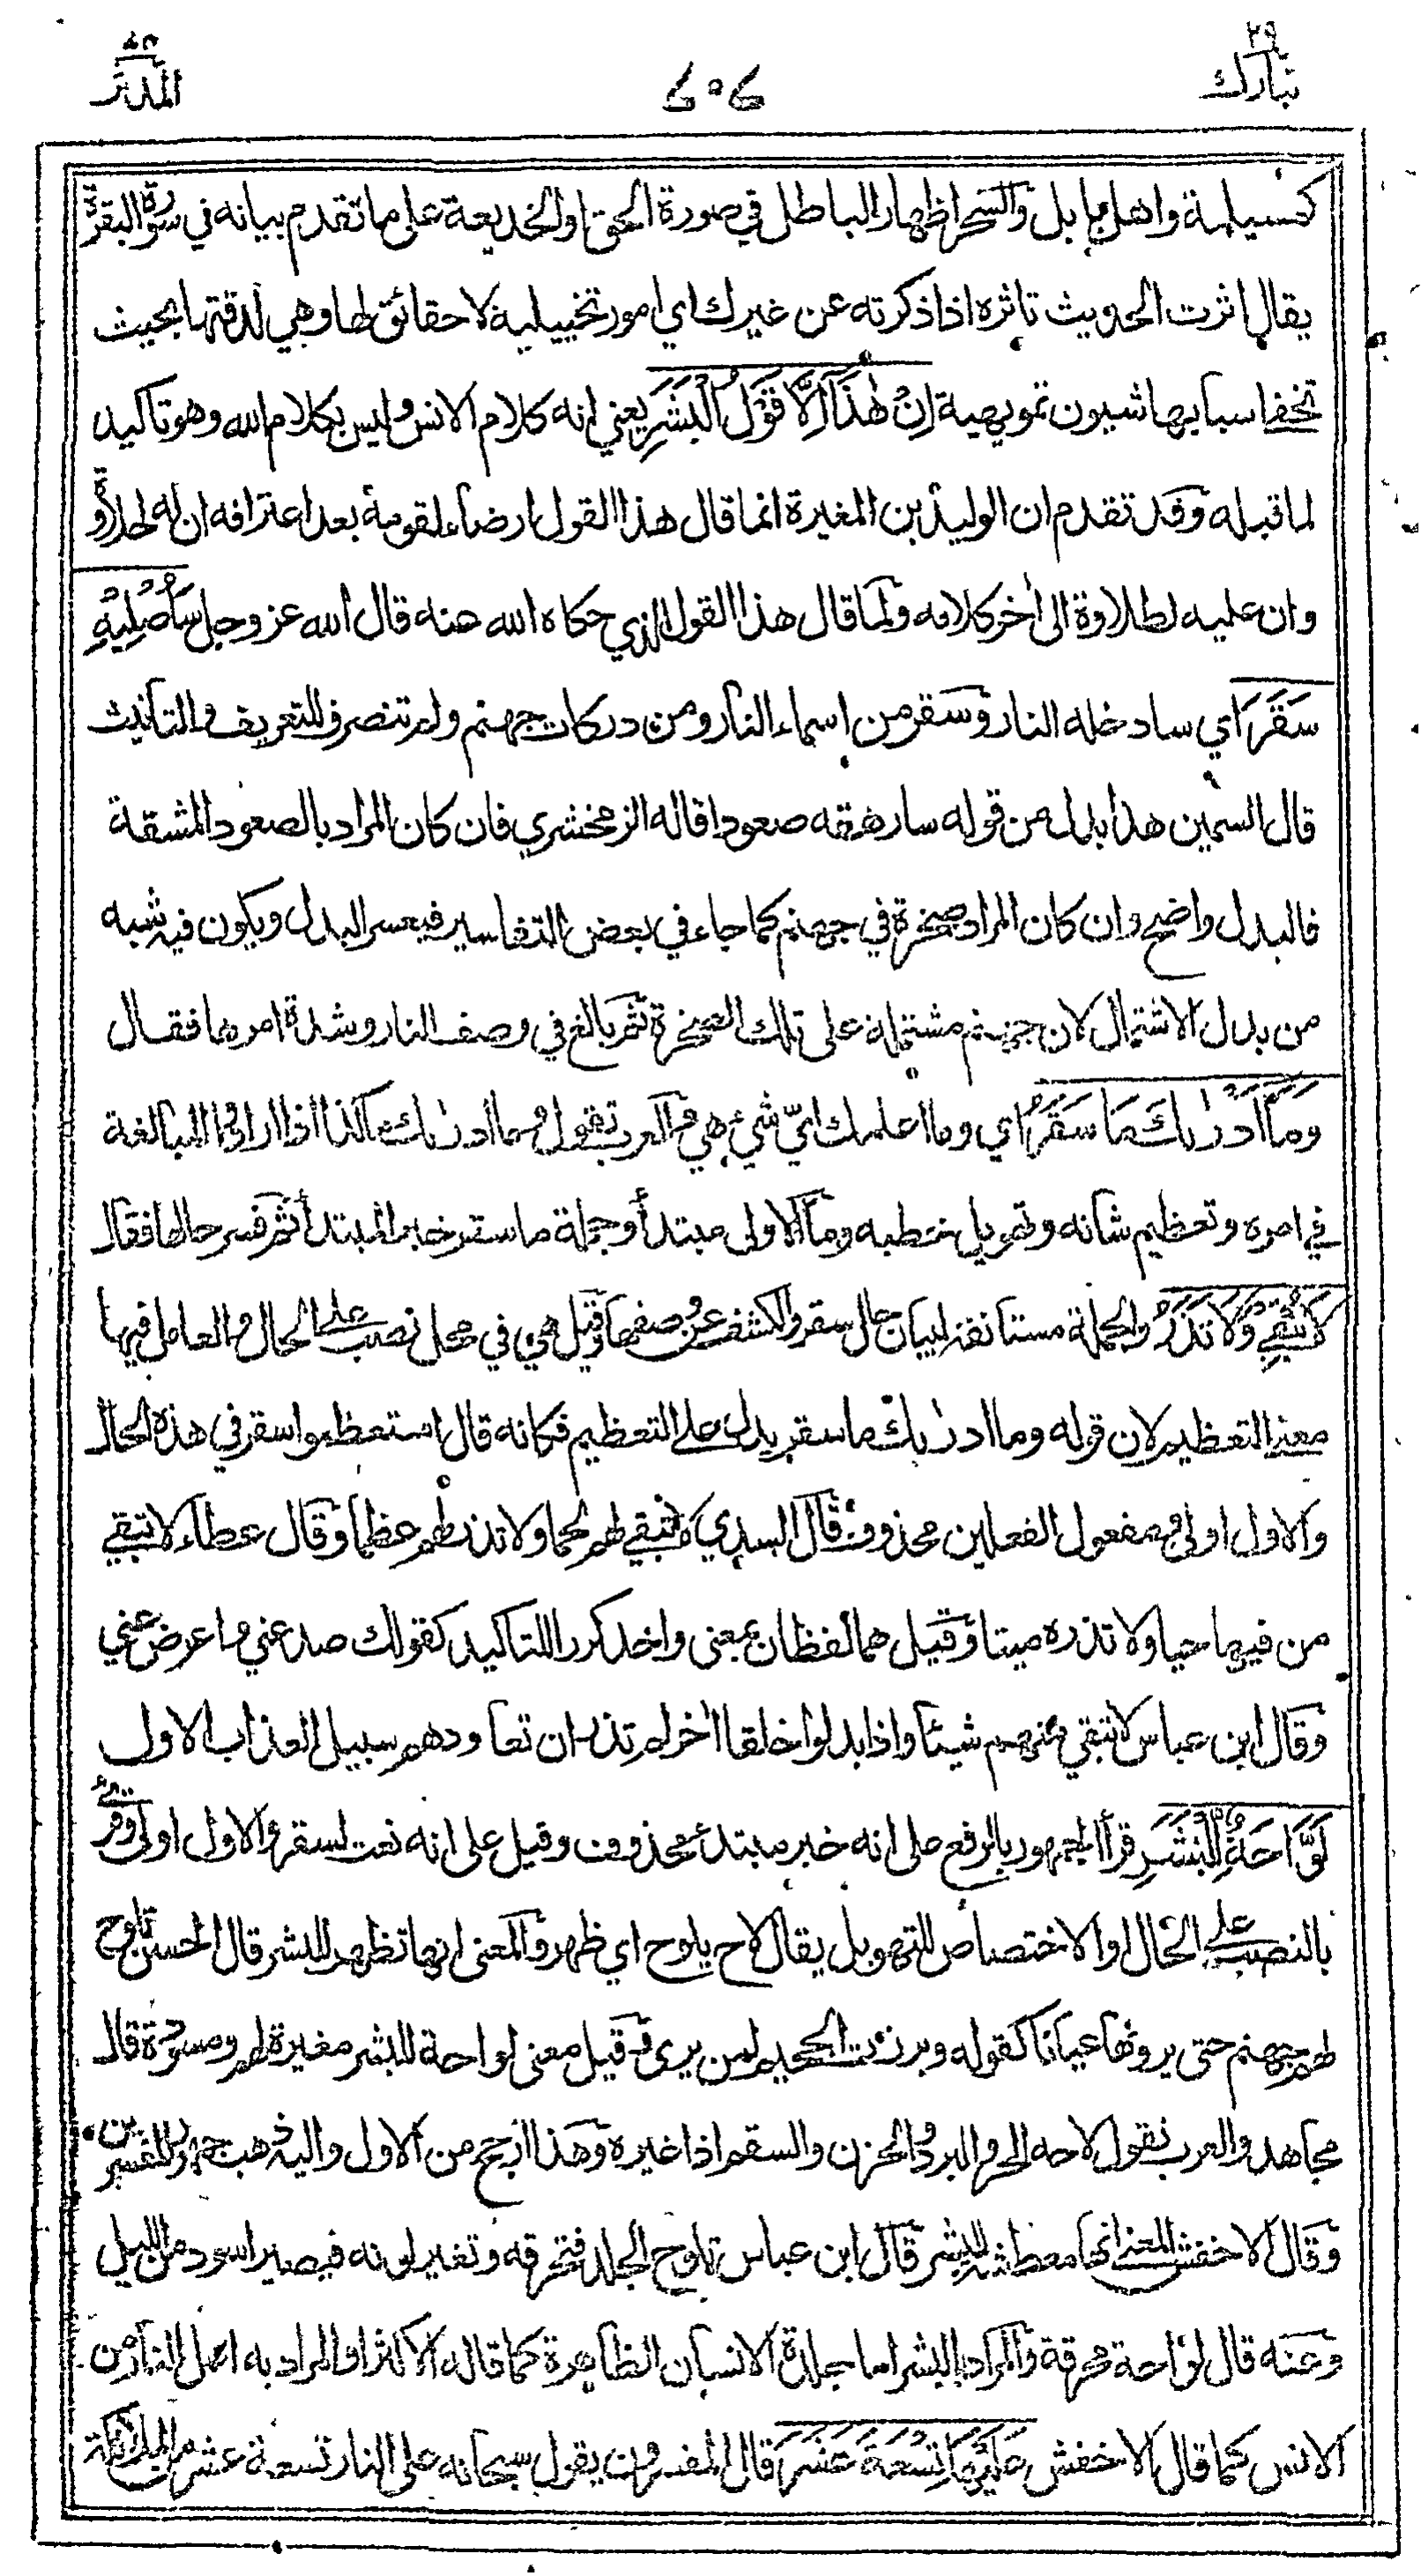 ٢٩
تبارك
٤٠٤
المدثر
كمسيلمة واهل بابل والسحر اظهار الباطل في صورة الحق او الخديعة على ما تقدم بيانه في سورة البقرة
يقال اثرت الحديث تاثره اذا ذكرته عن غيرك اي امور تخييلية لا حقائق لها وهي لدقتها بحيث
تخفى اسبابها شبون تمويهية اِنْ هٰذَآ اِلَّا قَوْلُ الْبَشَرِ يعني انه كلام الانس وليس بكلام الله وهو تاكيد
لما قبله وقد تقدم ان الوليد بن المغيرة انما قال هذا القول ارضاء لقومه بعد اعترافه ان له لحلاوة
وان عليه لطلاوة الى اخر كلامه ولما قال هذا القول الذي حكاه الله عنه قال الله عز وجل سَاُصْلِيْهِ
سَقَرَ اي سادخله النار وسقر من اسماء النار ومن دركات جهنم ولم تنصرف للتعريف والتانيث
قال السمين هذا بدل من قوله سارهقه صعودا قاله الزمخشري فان كان المراد بالصعود المشقة
فالبدل واضح وان كان المراد صخرة في جهنم كما جاء في بعض التفاسير فيعسر البدل ويكون فيه شبه
من بدل الاشتمال لان جهنم مشتملة على تلك الصخرة ثم بالغ في وصف النار وشدة امرها فقال
وَمَآ اَدْرٰىكَ مَا سَقَرُ اي وما اعلمك ايّ شيء هي والعرب تقول وما ادرىك ما كذا اذا ارادوا المبالغة
في امره وتعظيم شانه وتهويل خطبه وما الاولى مبتدأ وجملة ما سقر خبر المبتدأ ثم فسر حالها فقال
لَا تُبْقِيْ وَلَا تَذَرُ والجملة مستانفة لبيان حال سقر والكشف عن وصفها وقيل هي في محل نصب على الحال والعامل فيها
معنى التعظيم لان قوله وما ادرىك ما سقر يدل على التعظيم فكانه قال استعظموا سقر في هذه الحال
والاول اولى ومفعول الفعلين محذوف قال السدي لا تبقي لهم لحما ولا تذر لهم عظما وقال عطاء لا تبقي
من فيها حيا ولا تذره ميتا وقيل هما لفظان بمعنى واحد كررا للتاكيد كقولك صد عني واعرض عني
وقال ابن عباس لا تبقي منهم شيئا واذا بدلوا خلقا اخر لم تذر ان تعاودهم سبيل العذاب الاول
لَوَّاحَةٌ لِّلْبَشَرِ قرأ الجمهور بالرفع على انه خبر مبتدء محذوف وقيل على انه نعت لسقر والاول اولى وقرئ
بالنصب على الحال او الاختصاص للتهويل يقال لاح يلوح اي ظهر والمعنى انها تظهر للبشر قال الحسن تلوح
لهم جهنم حتى يرونها عيانا كقوله وبرزت الجحيم لمن يرى وقيل معنى لواحة للبشر مغيرة لهم ومسودة قال
مجاهد والعرب تقول لاحه الحر والبرد والحزن والسقم اذا غيره وهذا ارجح من الاول واليه ذهب جمهور المفسرين
وقال الاخفش المعنى انها معطشة للبشر قال ابن عباس تلوح الجلد فتحرقه وتغير لونه فيصير اسود من الليل
وعنه قال لواحة محرقة والمراد بالبشر اما جلدة الانسان الظاهرة كما قاله الاكثر او المراد به اهل النار من
الانس كما قال الاخفش عَلَيْهَا تِسْعَةَ عَشَرَ قال المفسرون يقول سبحانه على النار تسعة عشر من الملائكة